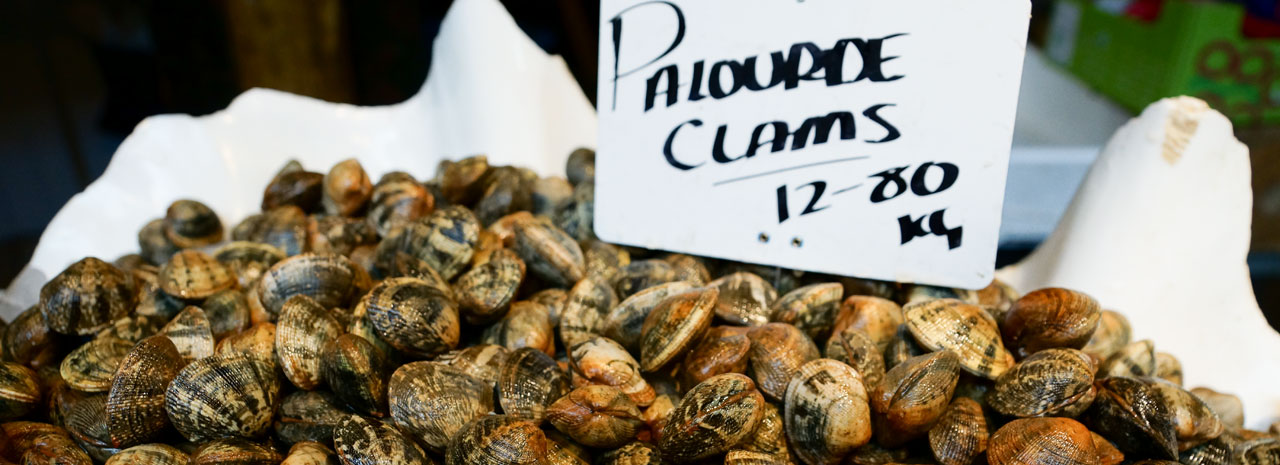 PALOURDE
CLAMS
12-80
KG